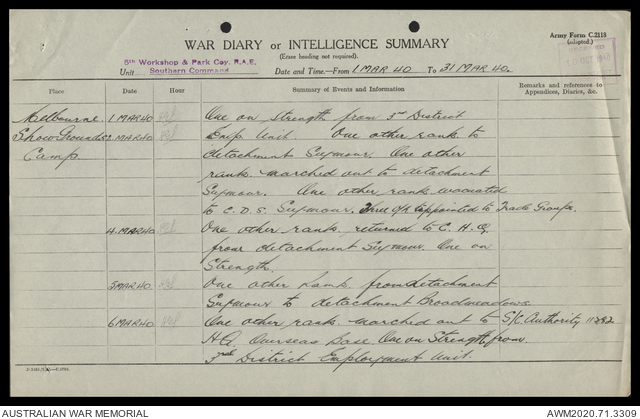 Army Form C.2118
(adapted.)
WAR DIARY or INTELLIGENCE SUMMARY
(Erase heading not required).
5th Workshop & Park Coy. R.A.E.
Unit Southern Command Date and Time.—From 1 MAR 40 To 31 MAR 40.
Place Date Hour Summary of Events and Information Remarks and references to Appendices, Diaries, &c.
Melbourne 1 MAR 40 One on strength from 3rd District
Show Grounds 2 MAR 40 Unit. One other rank to
Camp detachment Seymour. One other
rank marched out to detachment
Seymour. One other rank evacuated
to C.D.S. Seymour. Three O/R appointed to Trade Groups.
4 MAR 40 One other rank returned to C.H.Q
from detachment Seymour. One on
Strength.
5 MAR 40 One other Rank from detachment
Seymour to detachment Broadmeadows
6 MAR 40 One other rank marched out to S/C Authority 11892
H.Q. Overseas Base One on Strength from
3rd District Employment Unit.
AUSTRALIAN WAR MEMORIAL AWM2020.71.3309